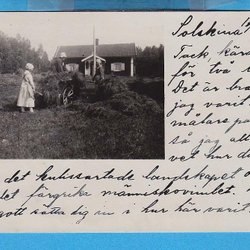 Solskina
Tack, kära
för två
Det är bra
jag varit
målare pa
så jag all
vet hur du
det kulissartade landskapet o
det färgrika människovimlet.
gott sätta sig in i hur här varit